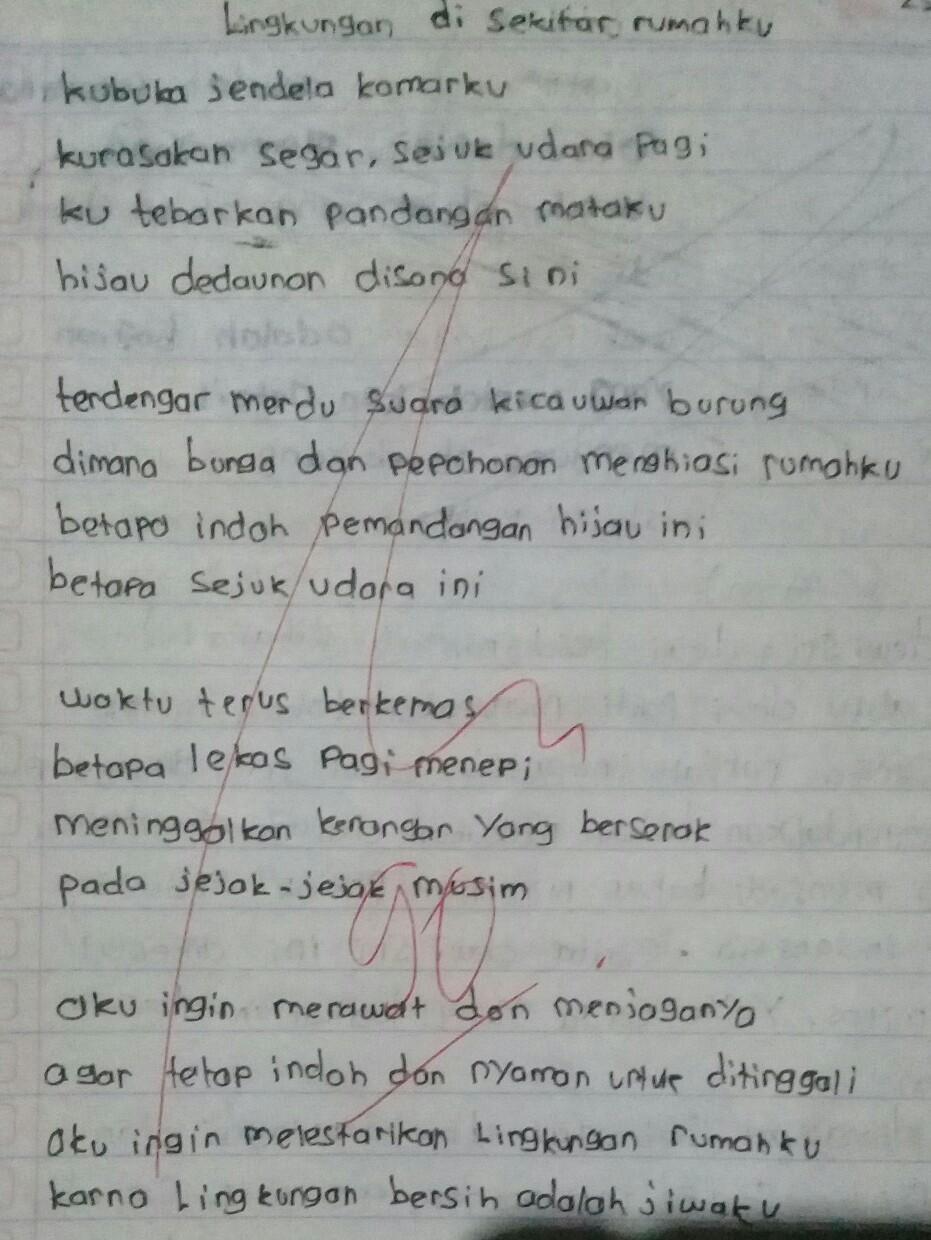 Lingkungan di sekitar rumahku
kubuka jendela kamarku
kurasakan segar, sejuk udara pagi
ku tebarkan pandangan mataku
hijau dedaunan disana sini
terdengar merdu suara kicauwan burung
dimana bunga dan pepohonan menghiasi rumahku
betapa indah pemandangan hijau ini
betapa sejuk udara ini
waktu terus berkemas
betapa lekas pagi menepi
meninggalkan kenangan yang berserak
pada jejak-jejak musim
90
aku ingin merawat dan menjaganya
agar tetap indah dan nyaman untuk ditinggali
aku ingin melestarikan Lingkungan rumahku
karna Lingkungan bersih adalah jiwaku